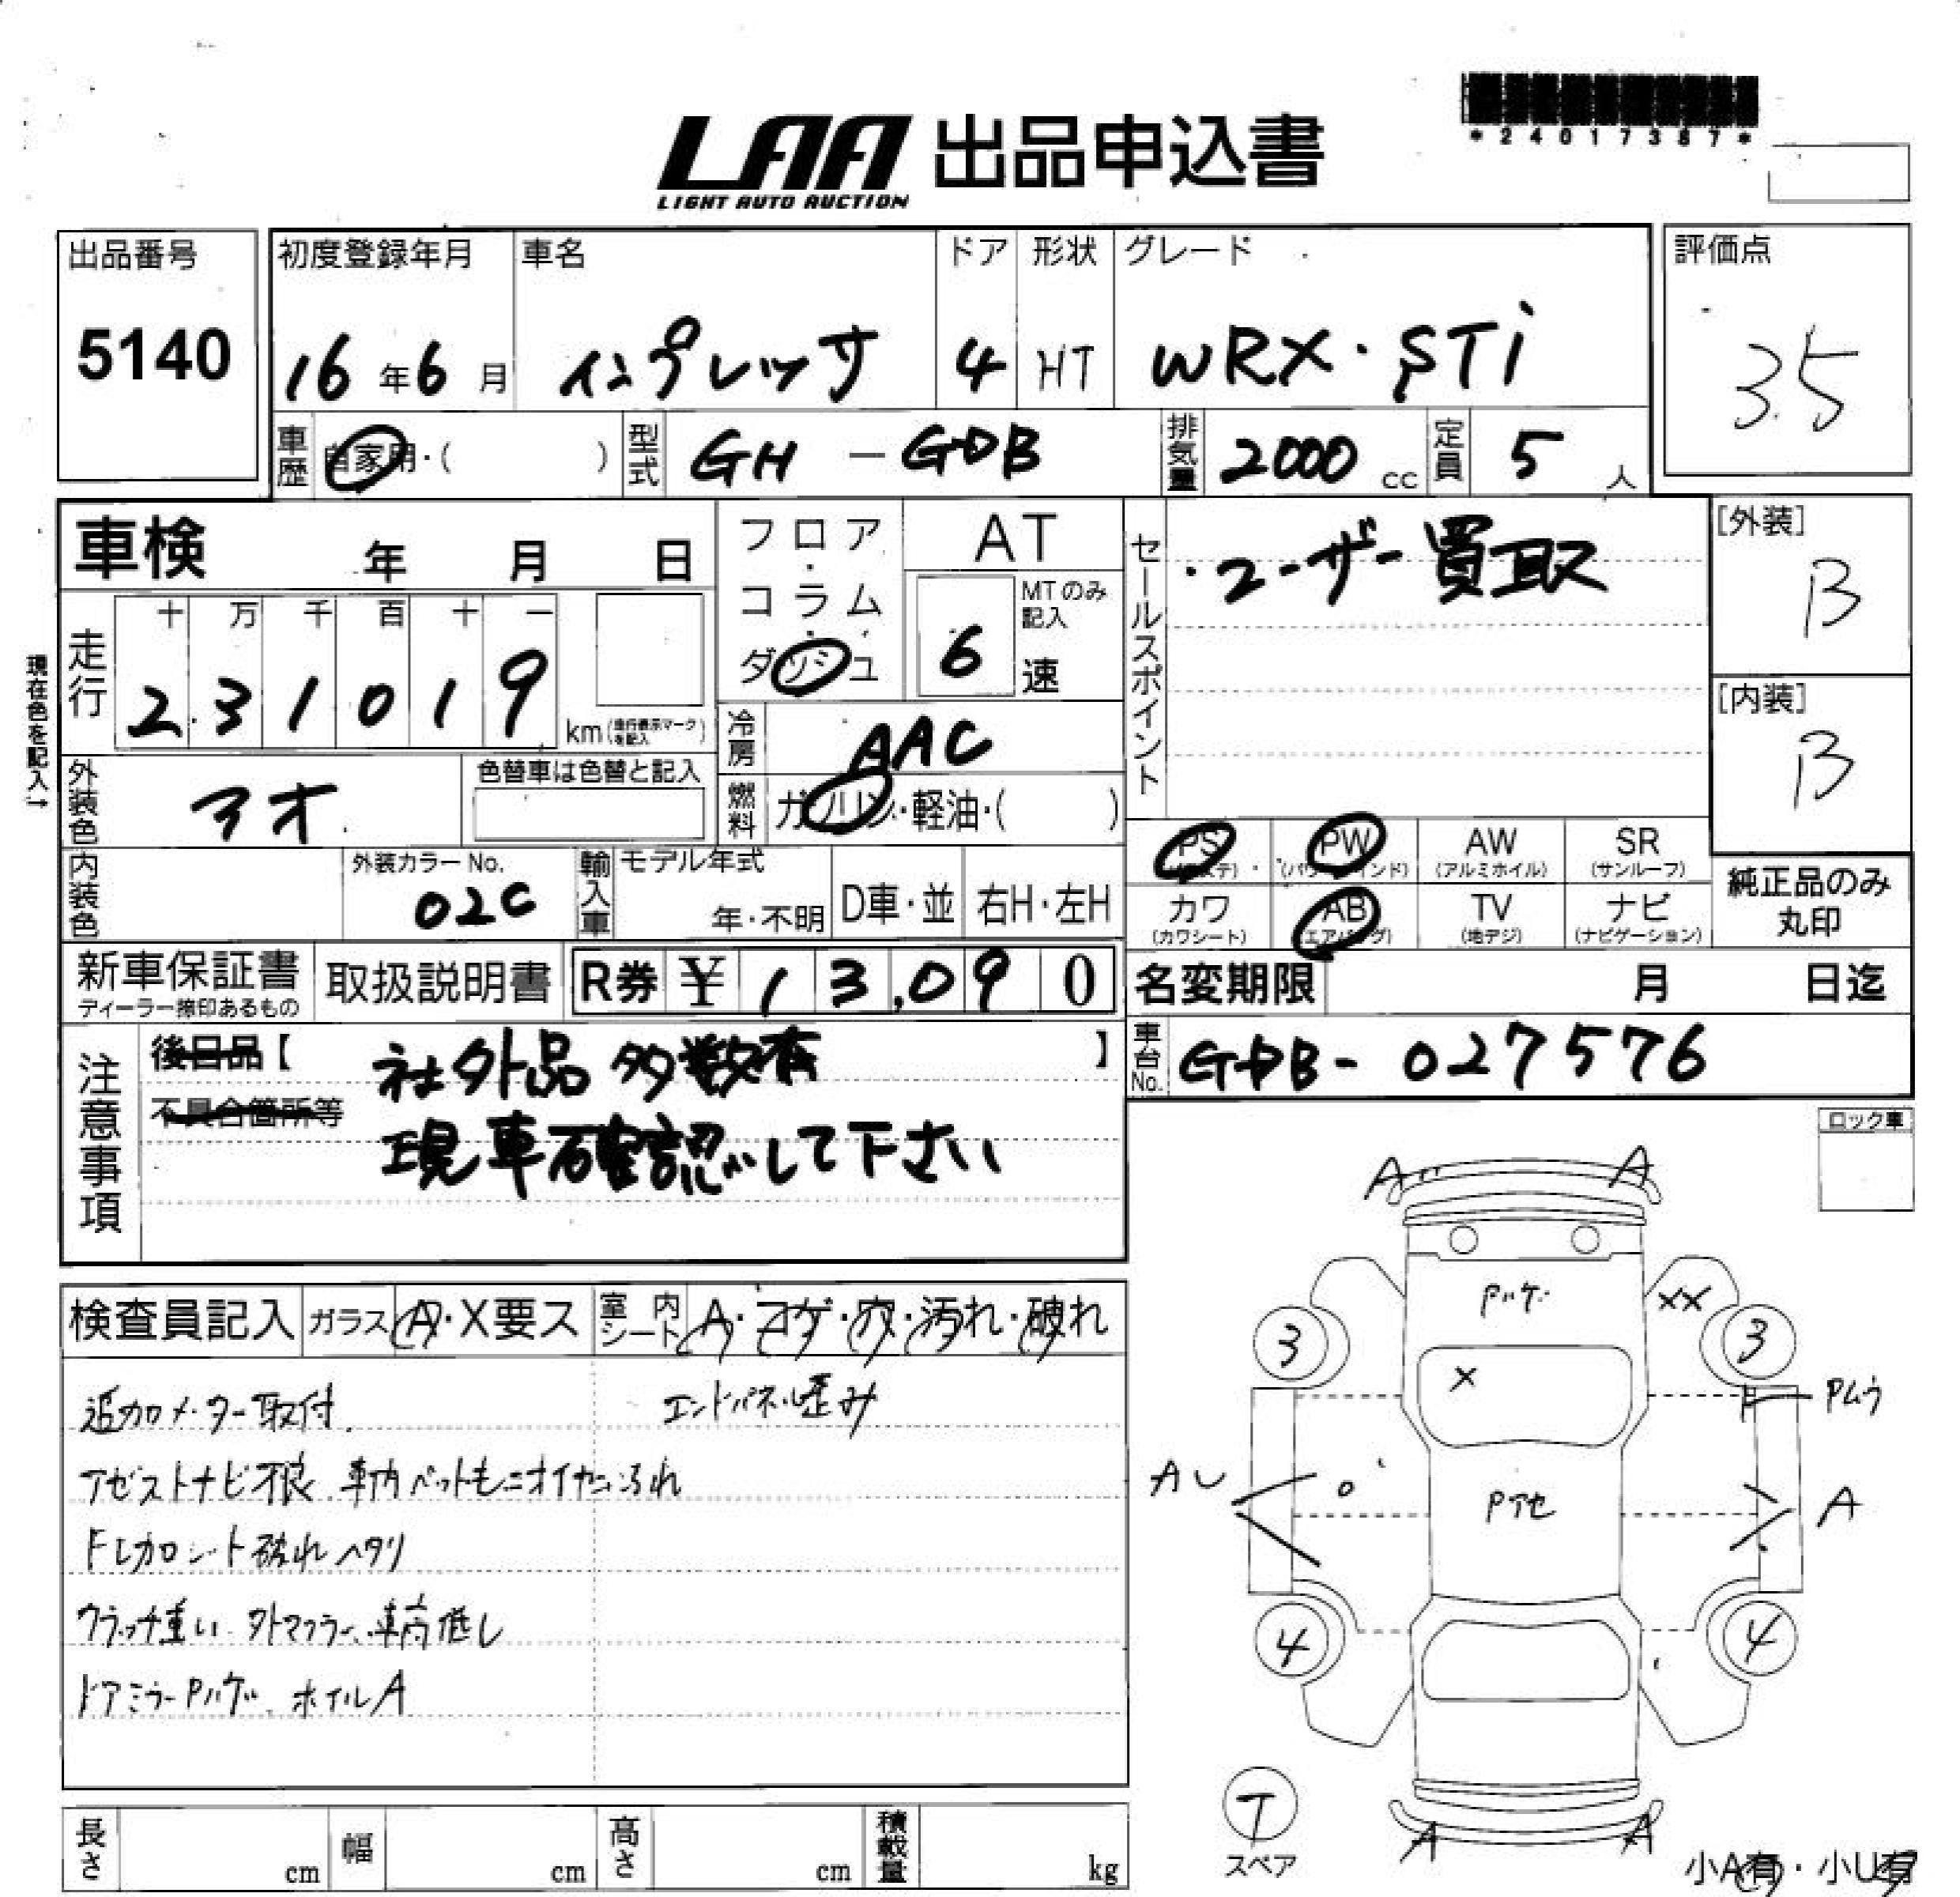 *24017387*
LAA 出品申込書
LIGHT AUTO AUCTION
出品番号 初度登録年月 車名 ドア 形状 グレード 評価点
5140 16年6月 インプレッサ 4 HT WRX・STi 3.5
車歴 自家用・( ) 型式 GH - GDB 排気量 2000 cc 定員 5 人
車検 年 月 日 フロア・コラム・ダッシュ AT セールスポイント ・ユーザー買取 [外装] B
現在色を記入→
走行 十 万 千 百 十 一 MTのみ記入
2 3 1 0 1 9 km(走行表示マークを記入) 6 速 [内装] B
冷房 AAC
外装色 アオ 色替車は色替と記入 燃料 ガソリン・軽油・( )
PS (パワステ) PW (パワーウインド) AW (アルミホイル) SR (サンルーフ)
内装色 外装カラーNo. 02C 輸入車 モデル年式 年・不明 D車・並 右H・左H
カワ (カワシート) AB (エアバッグ) TV (地デジ) ナビ (ナビゲーション) 純正品のみ丸印
新車保証書 ディーラー捺印あるもの 取扱説明書 R券 ¥ 1 3,0 9 0 名変期限 月 日迄
注意事項 後日品【 社外品多数有 】 車台No. GDB-027576
不具合箇所等 現車確認して下さい
ロック車
検査員記入 ガラス A・X要ス 室内シート A・コゲ・穴・汚れ・破れ
追加メーター取付 エンドパネル歪み
アゼストナビ不良 車内ペットもニオイ
ドアミラーPハゲ ホイルA
クラッチ重い 外マフラー 車高低し
A A
Pハゲ XX
3 3
X
Pムラ
AU Pアセ A
4 4
T
スペア
A A
小A有・小U有
長さ cm 幅 cm 高さ cm 積載量 kg